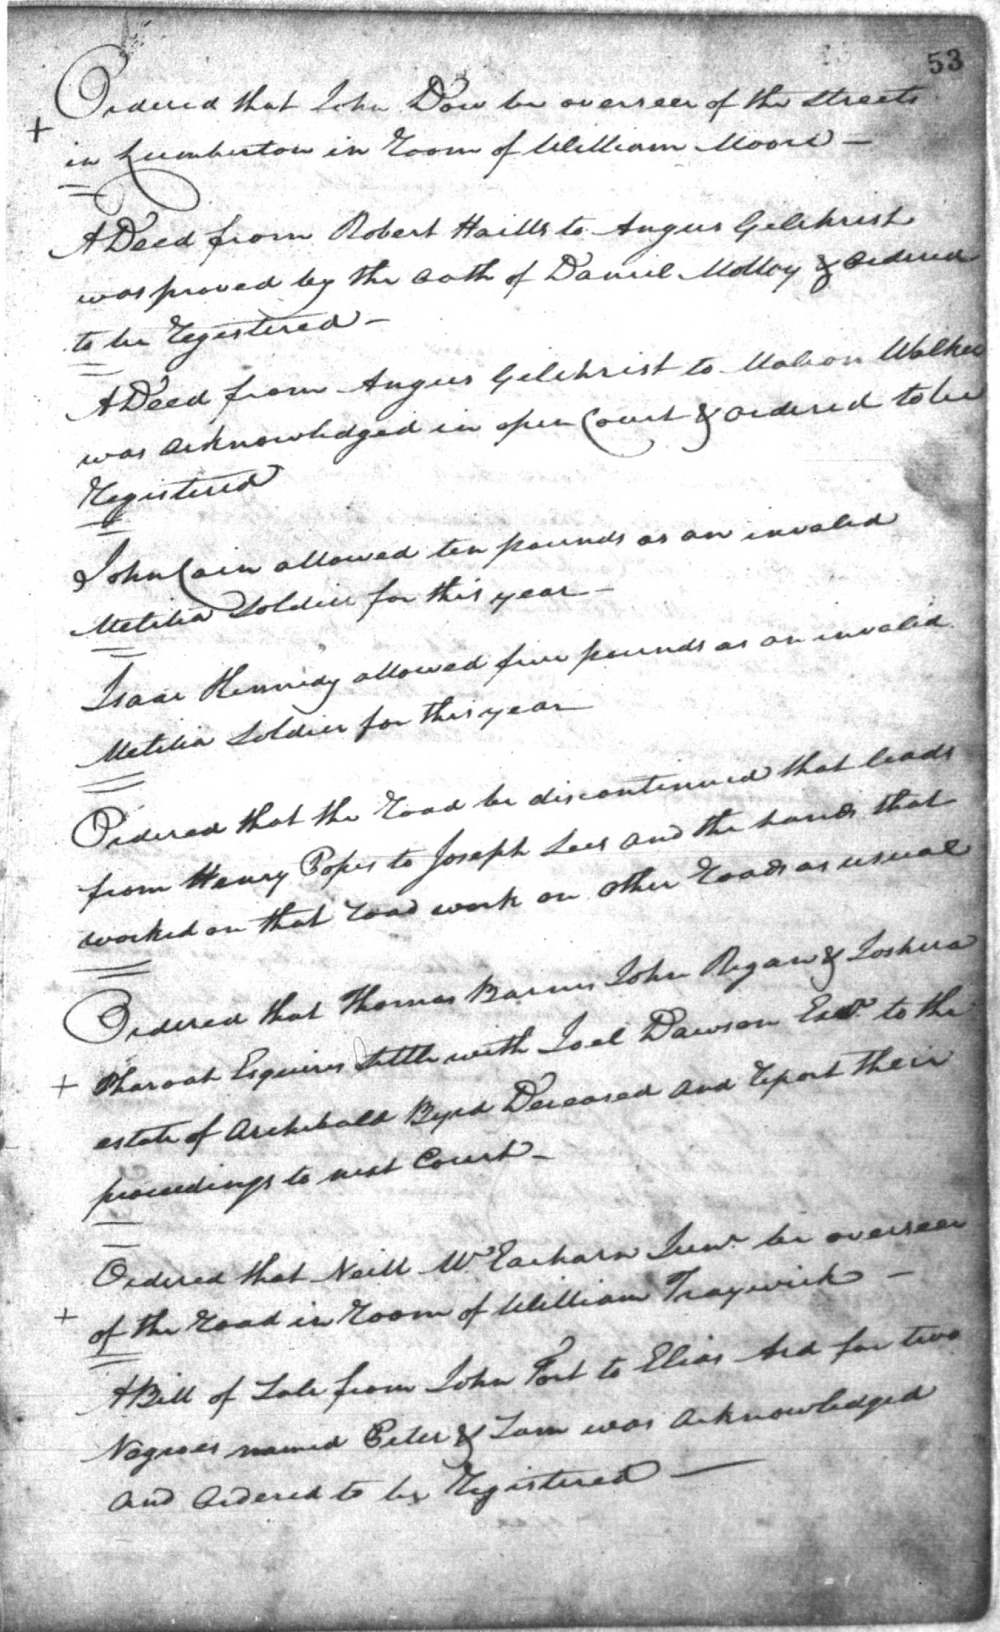 53
Ordered that John Dow be overseer of the streets
+
in Lumberton in Room of William Moore —
A Deed from Robert Haills to Angus Gilchrist
was proved by the oath of Daniel McKoy & ordered
to be Registered —
A Deed from Angus Gilchrist to Malcom Walker
was acknowledged in open Court & ordered to be
Registered
John Cain allowed ten pounds as an invalid
Metilia Soldier for this year —
Isaac Kennedy allowed five pounds as an invalid
Metilia Soldier for this year —
Ordered that the Road be discontinued that leads
from Henry Popes to Joseph Lees and the hands that
worked on that road work on other Roads as usual
Ordered that Thomas Barnes John Regan & Joshua
+ Pharoah Esquires Settle with Joel Dawson Exr to the
estate of Archibald Byrd Deceased and Report their
proceedings to next Court —
Ordered that Neill Mc Eacharn Junr be overseer
+ of the Road in Room of William Traywick —
A Bill of Sale from John Fort to Elias Ard for two
Negroes named Peter & Sam was acknowledged
and ordered to be Registered —